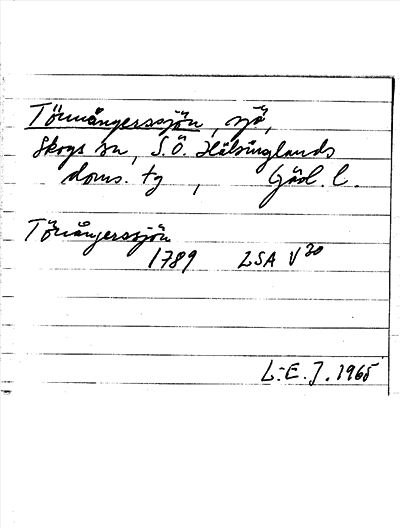 Törnångerssjön, sjö,
Skogs sn, S.Ö. Hälsinglands
doms. tg, Gävl. l.
Törångerssjön
1789 LSA V 20
L-E. J. 1965